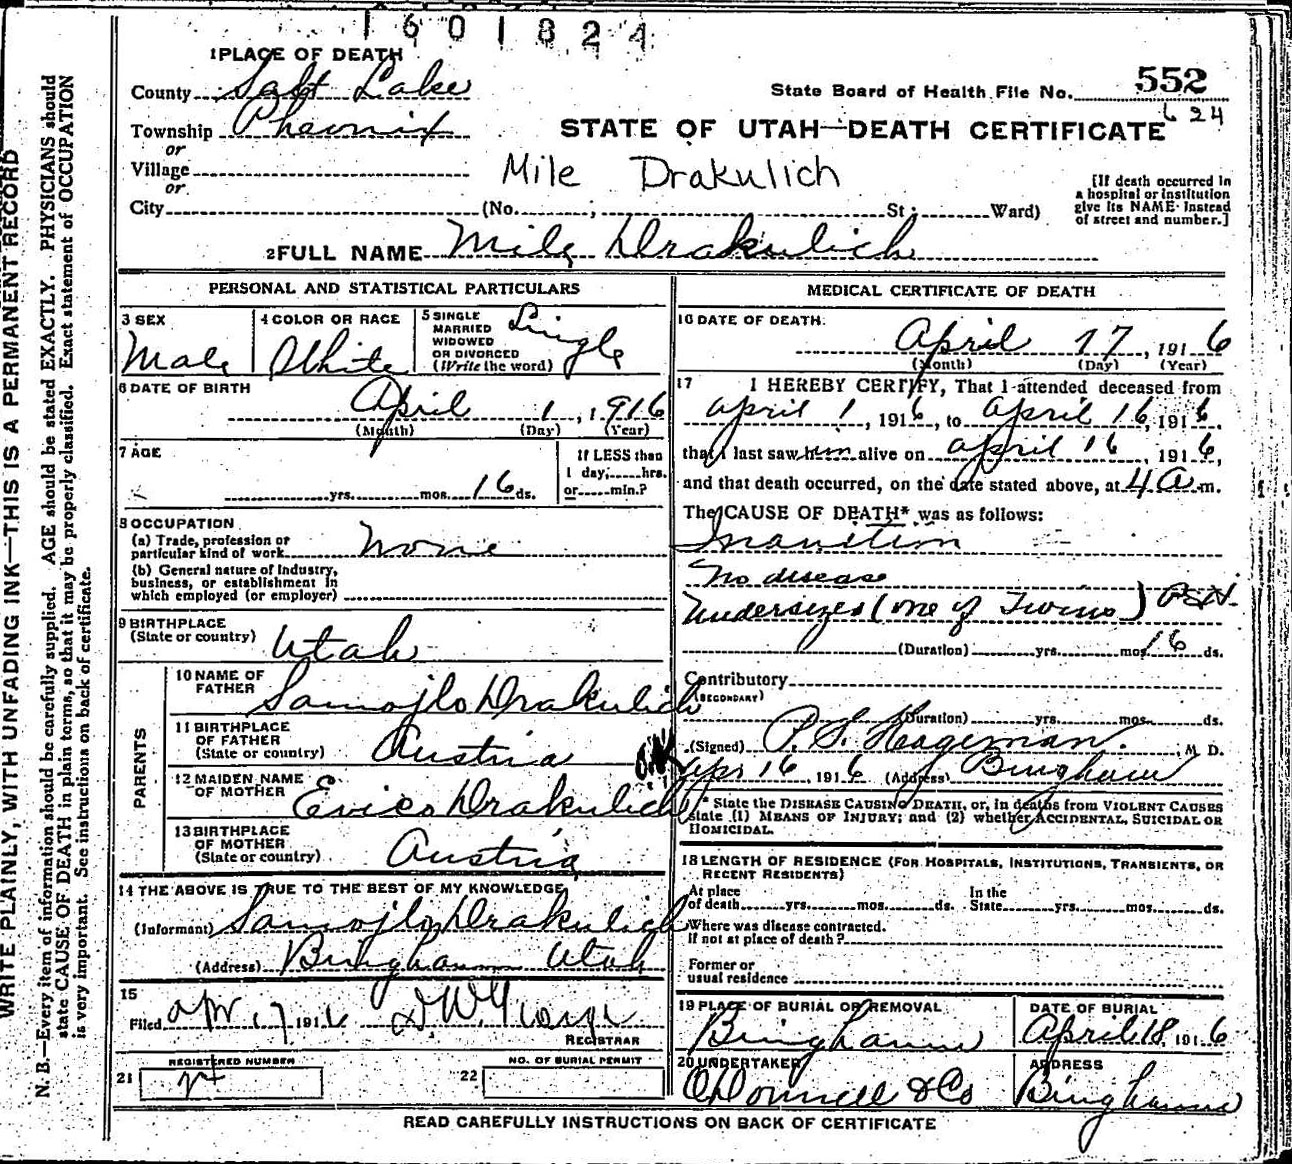 1601824
1 PLACE OF DEATH
County Salt Lake
State Board of Health File No. 552
Township Pheonix
624
or
STATE OF UTAH—DEATH CERTIFICATE
Village
Mile Drakulich
or
City (No. ; St ; Ward)
[If death occurred in a hospital or institution give its NAME instead of street and number.]
2 FULL NAME Mile Drakulich
PERSONAL AND STATISTICAL PARTICULARS
3 SEX
Male
4 COLOR OR RACE
White
5 SINGLE MARRIED WIDOWED OR DIVORCED (Write the word)
Single
6 DATE OF BIRTH
April 1, 1916
(Month) (Day) (Year)
7 AGE
yrs. mos. 16 ds.
If LESS than
1 day, hrs.
or min.?
8 OCCUPATION
(a) Trade, profession or
particular kind of work None
(b) General nature of Industry,
business, or establishment in
which employed (or employer)
9 BIRTHPLACE
(State or country) Utah
PARENTS
10 NAME OF
FATHER Samojlo Drakulich
11 BIRTHPLACE
OF FATHER
(State or country) Austria
12 MAIDEN NAME
OF MOTHER Evica Drakulich
O.K.
13 BIRTHPLACE
OF MOTHER
(State or country) Austria
14 THE ABOVE IS TRUE TO THE BEST OF MY KNOWLEDGE
(Informant) Samojlo Drakulich
(Address) Bingham Utah
15
Filed Apr 17 1916
REGISTRAR
REGISTERED NUMBER
21
NO. OF BURIAL PERMIT
22
MEDICAL CERTIFICATE OF DEATH
16 DATE OF DEATH
April 17, 1916
(Month) (Day) (Year)
17 I HEREBY CERTIFY, That I attended deceased from
April 1, 1916, to April 16, 1916.
that I last saw him alive on April 16, 1916,
and that death occurred, on the date stated above, at 4 A. m.
The CAUSE OF DEATH* was as follows:
Inanition
No disease
Undersized (one of Twins)
(Duration) yrs. mos. 16 ds.
Contributory
(SECONDARY)
(Duration) yrs. mos. ds.
(Signed) P. S. Hageman. M D.
Apr 16 1916 (Address) Bingham
* State the DISEASE CAUSING DEATH, or, in deaths from VIOLENT CAUSES
state (1) MEANS OF INJURY; and (2) whether ACCIDENTAL, SUICIDAL OR
HOMICIDAL.
18 LENGTH OF RESIDENCE (FOR HOSPITALS, INSTITUTIONS, TRANSIENTS, OR
RECENT RESIDENTS)
At place
of death yrs. mos. ds.
In the
State yrs. mos. ds.
Where was disease contracted.
if not at place of death?
Former or
usual residence
19 PLACE OF BURIAL OR REMOVAL
Bingham
DATE OF BURIAL
April 18, 1916
20 UNDERTAKER
O'Donnell & Co
ADDRESS
Bingham
READ CAREFULLY INSTRUCTIONS ON BACK OF CERTIFICATE
WRITE PLAINLY, WITH UNFADING INK—THIS IS A PERMANENT RECORD
N. B.—Every item of information should be carefully supplied. AGE should be stated EXACTLY. PHYSICIANS should
state CAUSE OF DEATH in plain terms, so that it may be properly classified. Exact statement of OCCUPATION
is very important. See instructions on back of certificate.